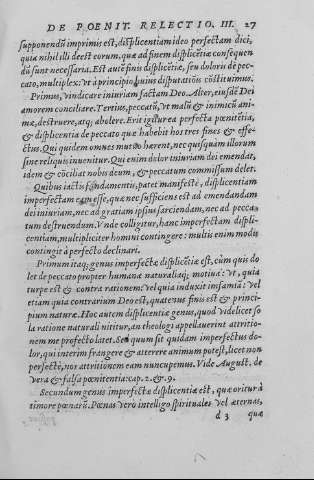 DE POENIT. RELECTIO. III. 27
supponendũ imprimis est, displicentiam ideo perfectam dici,
quia nihil illi deest eorum, quæ ad finem displicẽtiæ consequen
dũ sunt necessaria. Est autẽ finis displicẽtiæ, seu doloris de pec-
cato, multiplex: vt à principio huius disputatiõis cõstituimus.
Primus, vindicare iniuriam factam Deo. Alter, eiusdẽ Dei
amorem conciliare. Tertius, peccatũ, vt malũ & inimicũ ani-
mæ, destruere, atq; abolere. Erit igitur ea perfecta pœnitẽtia,
& displicentia de peccato quæ habebit hos tres fines & effe-
ctus. Qui quidem omnes mutuò hærent, nec quisquàm illorum
sine reliquis inuenitur. Qui enim dolor iniuriam dei emendat,
idem & cõciliat nobis deum, & peccatum commissum delet.
Quibus iactis fũdamentis, patet manifestè, displicentiam
imperfectam eam esse, quæ nec sufficiens est ad emendandam
dei iniuriam, nec ad gratiam ipsius sarciendam, nec ad pecca-
tum destruendum. Vnde colligitur, hanc imperfectam displi-
centiam, multipliciter homini contingere: multis enim modis
contingit à perfecto declinari.
Primum itaq; genus imperfectæ displicẽtiæ est, cùm quis do
let de peccato propter humana naturaliaq; motiua: vt, quia
turpe est & contra rationem: vel quia induxit infamiã: vel
etiam quia contrarium Deo est, quatenus finis est & princi-
pium naturæ. Hoc autem displicentiæ genus, quod videlicet so
la ratione naturali nititur, an theologi appellauerint attritio-
nem me profectò latet. Sed quum sit quidam imperfectus do-
lor, qui interim frangere & atterere animum potest, licet non
perfectè, nos attritionem eam nuncupemus. Vide August. de
vera & falsa pœnitentia: cap. 2. & 9.
Secundum genus imperfectæ displicentiæ est, quæ oritur à
timore pœnarũ. Pœnas verò intelligo spirituales vel æternas,
d 3 quæ